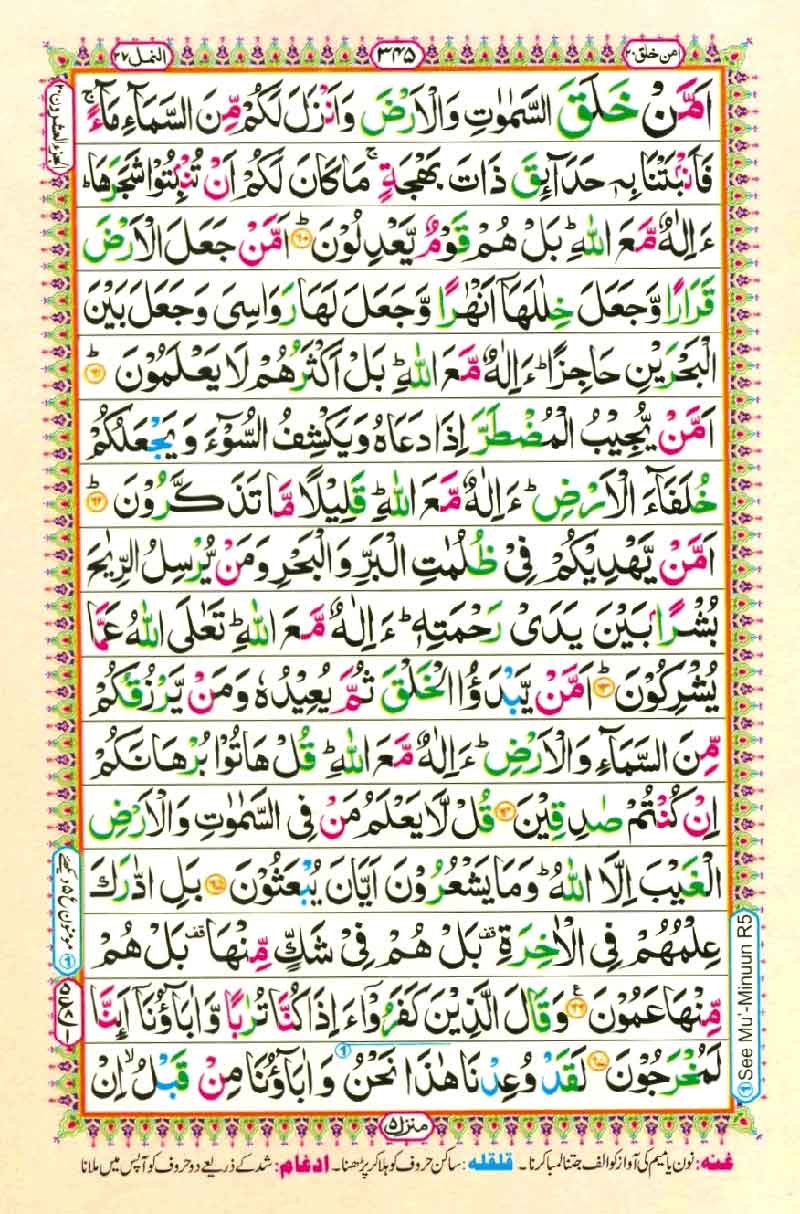 امن خلق ۲۰
۳۴۵
النمل ۲۷
اَمَّنْ خَلَقَ السَّمٰوٰتِ وَالْاَرْضَ وَاَنْزَلَ لَكُمْ مِّنَ السَّمَآءِ مَآءً ۚ
فَاَنْۢبَتْنَا بِهٖ حَدَآئِقَ ذَاتَ بَهْجَةٍ ۚ مَا كَانَ لَكُمْ اَنْ تُنْۢبِتُوْا شَجَرَهَا ؕ
ءَاِلٰهٌ مَّعَ اللّٰهِ ؕ بَلْ هُمْ قَوْمٌ يَّعْدِلُوْنَ ؕ۶۰ اَمَّنْ جَعَلَ الْاَرْضَ
قَرَارًا وَّجَعَلَ خِلٰلَهَاۤ اَنْهٰرًا وَّجَعَلَ لَهَا رَوَاسِىَ وَجَعَلَ بَيْنَ
الْبَحْرَيْنِ حَاجِزًا ؕ ءَاِلٰهٌ مَّعَ اللّٰهِ ؕ بَلْ اَكْثَرُهُمْ لَا يَعْلَمُوْنَ ؕ۶۱
اَمَّنْ يُّجِيْبُ الْمُضْطَرَّ اِذَا دَعَاهُ وَيَكْشِفُ السُّوْٓءَ وَيَجْعَلُكُمْ
خُلَفَآءَ الْاَرْضِ ؕ ءَاِلٰهٌ مَّعَ اللّٰهِ ؕ قَلِيْلًا مَّا تَذَكَّرُوْنَ ؕ۶۲
اَمَّنْ يَّهْدِيْكُمْ فِىْ ظُلُمٰتِ الْبَرِّ وَالْبَحْرِ وَمَنْ يُّرْسِلُ الرِّيٰحَ
بُشْرًۢا بَيْنَ يَدَىْ رَحْمَتِهٖ ؕ ءَاِلٰهٌ مَّعَ اللّٰهِ ؕ تَعٰلَى اللّٰهُ عَمَّا
يُشْرِكُوْنَ ؕ۶۳ اَمَّنْ يَّبْدَؤُا الْخَلْقَ ثُمَّ يُعِيْدُهٗ وَمَنْ يَّرْزُقُكُمْ
مِّنَ السَّمَآءِ وَالْاَرْضِ ؕ ءَاِلٰهٌ مَّعَ اللّٰهِ ؕ قُلْ هَاتُوْا بُرْهَانَكُمْ
اِنْ كُنْتُمْ صٰدِقِيْنَ ۶۴ قُلْ لَّا يَعْلَمُ مَنْ فِى السَّمٰوٰتِ وَالْاَرْضِ
الْغَيْبَ اِلَّا اللّٰهُ ؕ وَمَا يَشْعُرُوْنَ اَيَّانَ يُبْعَثُوْنَ ۶۵ بَلِ ادّٰرَكَ
عِلْمُهُمْ فِى الْاٰخِرَةِ ۫ بَلْ هُمْ فِىْ شَكٍّ مِّنْهَا ۫ بَلْ هُمْ
مِّنْهَا عَمُوْنَ ۶۶ وَقَالَ الَّذِيْنَ كَفَرُوْۤا ءَاِذَا كُنَّا تُرٰبًا وَّاٰبَآؤُنَاۤ اَئِنَّا
لَمُخْرَجُوْنَ ۶۷ لَقَدْ وُعِدْنَا هٰذَا نَحْنُ وَاٰبَآؤُنَا مِنْ قَبْلُ ۙ اِنْ
الجزء العشرون ۲۰
See Mu'-Minuun R5
منزل ۵
غنہ: نون یا میم کی آواز کو الف جتنا لمبا کرنا ۔ قلقلہ: ساکن حروف کو ہلا کر پڑھنا ۔ ادغام: شد کے ذریعے دو حروف کو آپس میں ملانا